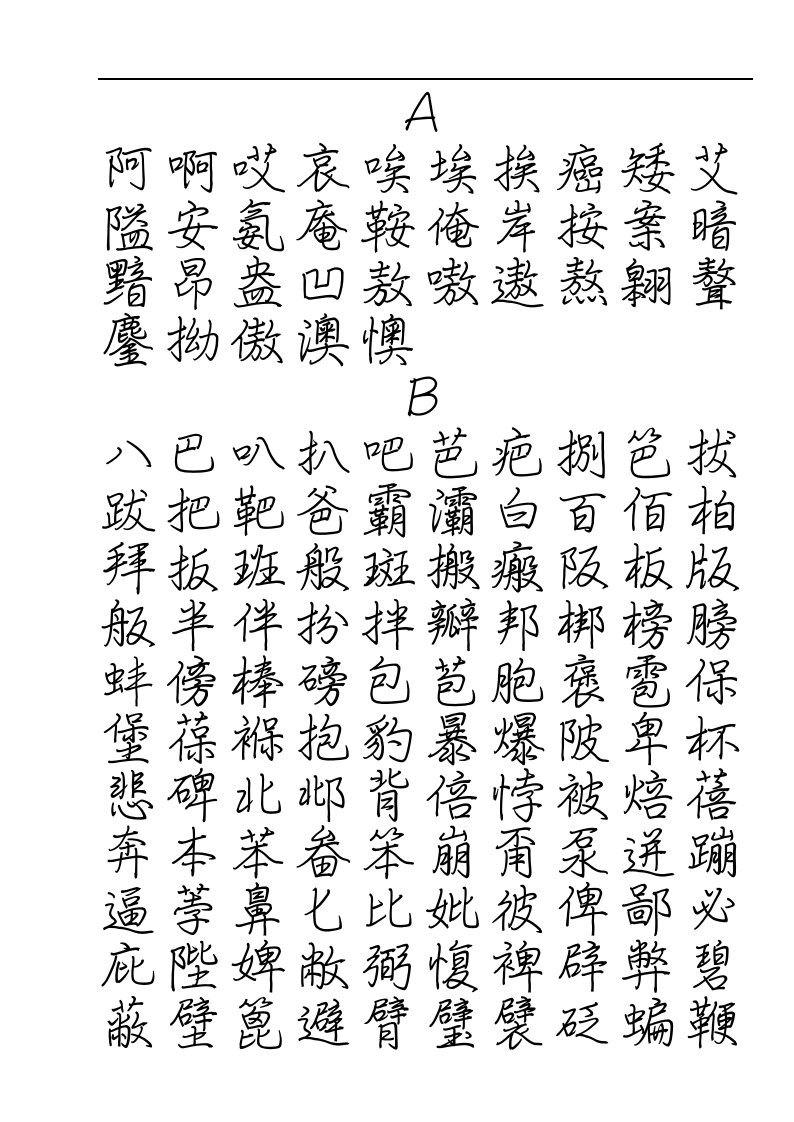 A
阿 啊 哎 哀 唉 埃 挨 癌 矮 艾
隘 安 氨 庵 鞍 俺 岸 按 案 暗
黯 昂 盎 凹 敖 嗷 遨 熬 翱 聱
鏖 拗 傲 澳 懊
B
八 巴 叭 扒 吧 芭 疤 捌 笆 拔
跋 把 靶 爸 霸 灞 白 百 佰 柏
拜 扳 班 般 斑 搬 瘢 阪 板 版
舨 半 伴 扮 拌 瓣 邦 梆 榜 膀
蚌 傍 棒 磅 包 苞 胞 褒 雹 保
堡 葆 褓 抱 豹 暴 爆 陂 卑 杯
悲 碑 北 邶 背 倍 悖 被 焙 蓓
奔 本 苯 畚 笨 崩 甭 泵 迸 蹦
逼 荸 鼻 匕 比 妣 彼 俾 鄙 必
庇 陛 婢 敝 弼 愎 裨 辟 弊 碧
蔽 壁 篦 避 臂 璧 襞 砭 蝙 鞭